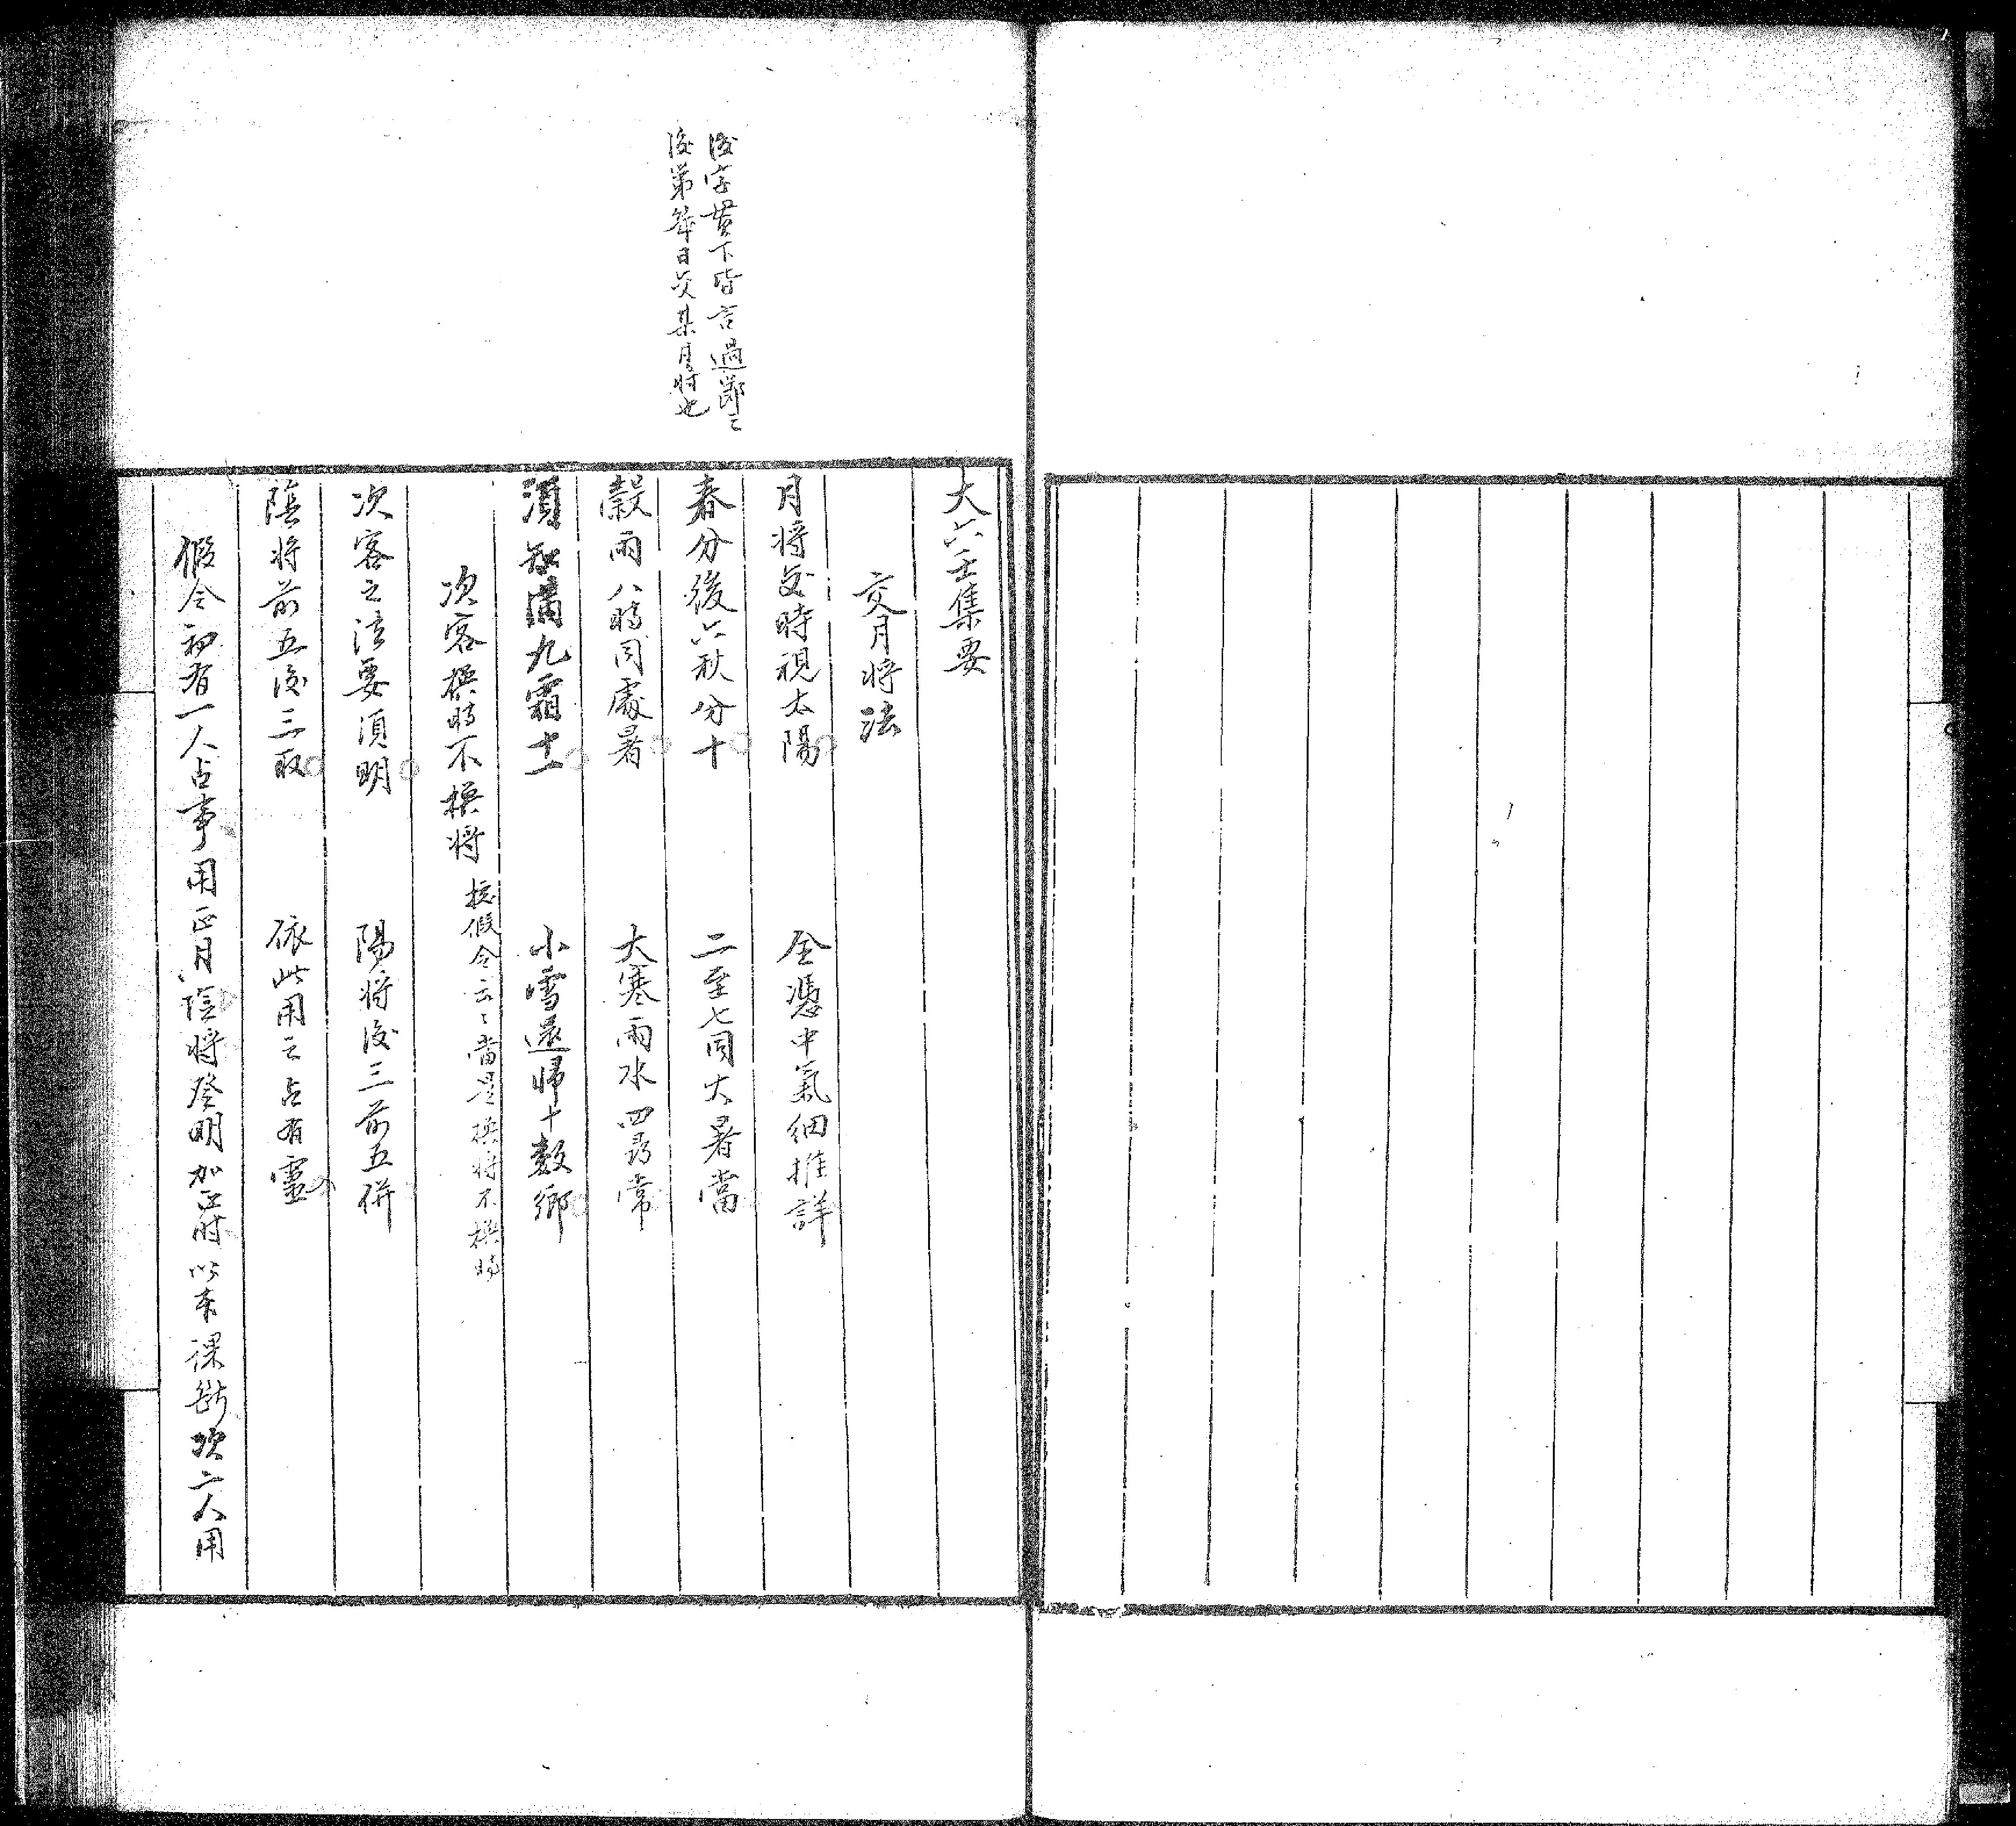 後字貫下皆言過節之
後第幾日交某月将也
大六壬集要
交月将法
月将交時視太陽　全憑中氣細推詳
春分後六秋分十　二至七同大暑當
穀雨八時同處暑　大寒雨水四尋常
須知滿九霜十一　小雪還歸十數鄉
次客換時不換将　按假令云云當是換将不換時
次客之法要須明　陽将後三前五併
陰将前五後三取　依此用之占有靈
假令初有一人占事用正月陰将登明加正時以來課斷次二人用